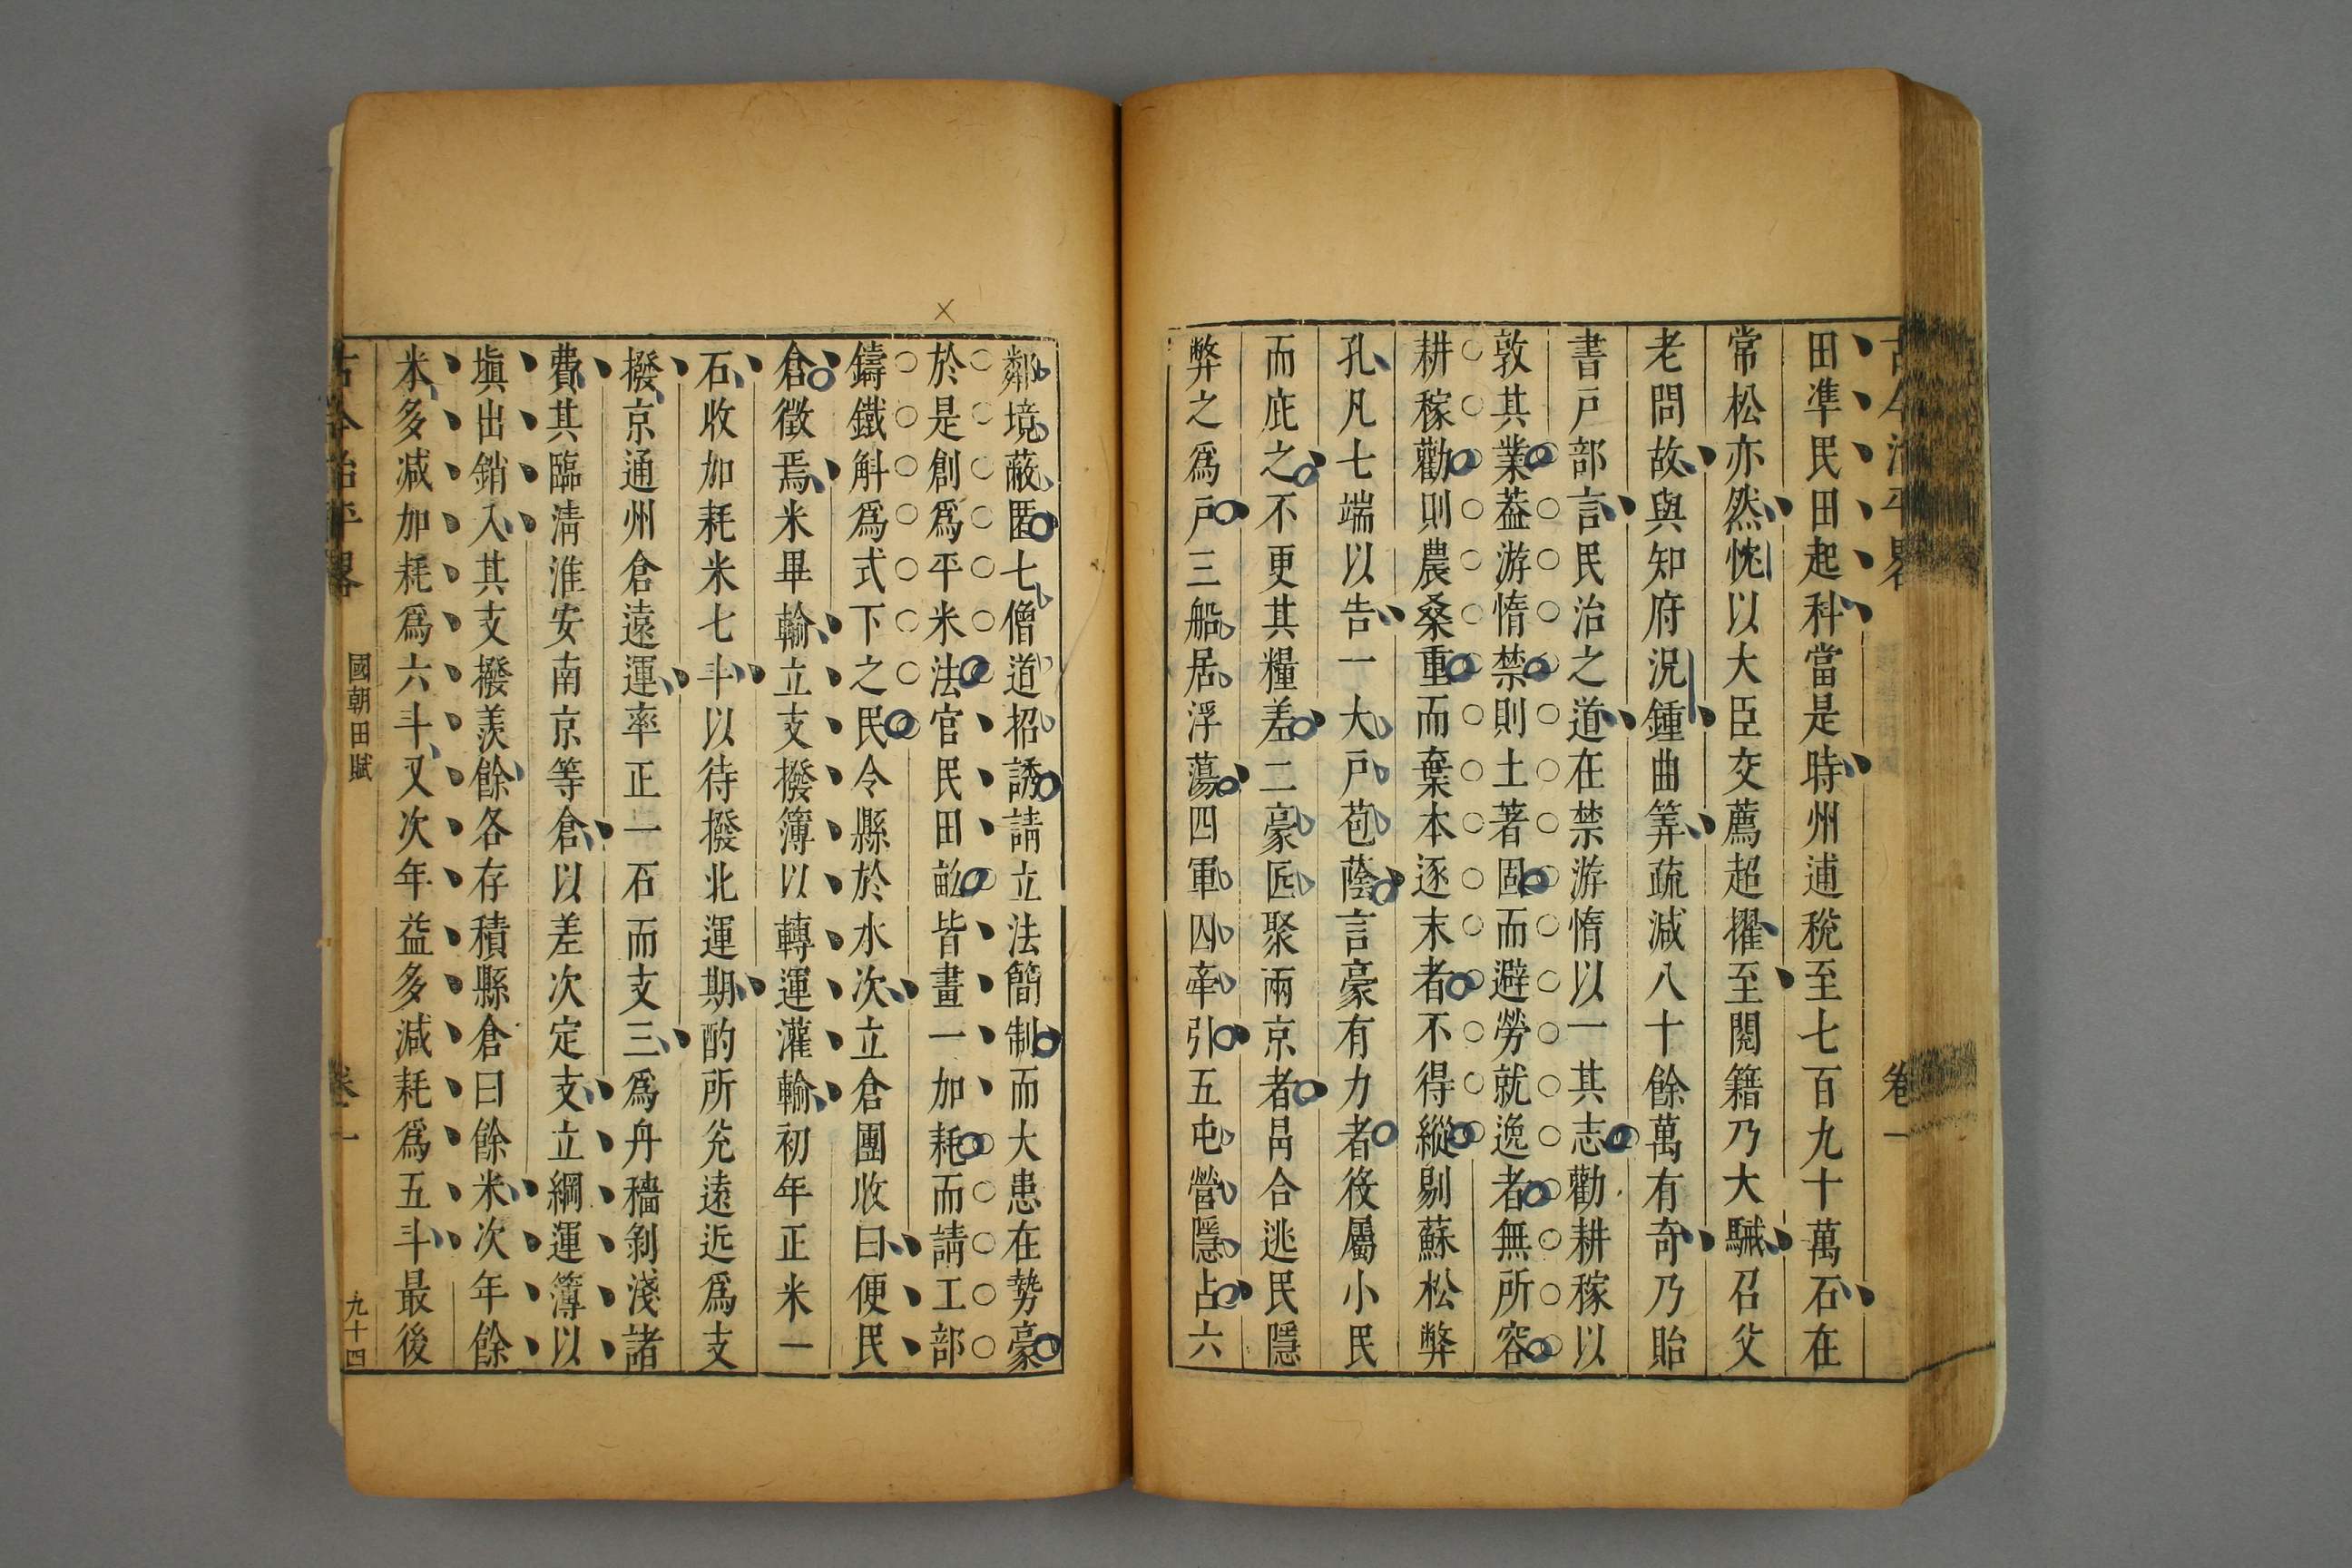 卷一
田準民田起科當是時州逋稅至七百九十萬石在
常松亦然忱以大臣交薦超擢至閱籍乃大駴召父
老問故與知府況鍾曲筭疏減八十餘萬有奇乃貽
書戸部言民治之道在禁游惰以一其志勸耕稼以
敦其業葢游惰禁則土著固而避勞就逸者無所容
耕稼勸則農桑重而棄本逐末者不得縱剔蘇松弊
孔凡七端以告一大戸苞蔭言豪有力者役屬小民
而庇之不更其糧差二豪匠聚兩京者冐合逃民隱
弊之爲戸三船居浮蕩四軍囚牽引五屯營隱占六
鄰境蔽匿七僧道招誘請立法簡制而大患在勢豪
於是創爲平米法官民田畝皆畫一加耗而請工部
鑄鐵斛爲式下之民令縣於水次立倉團收曰便民
倉徵焉米畢輸立支撥簿以轉運灌輸初年正米一
石收加耗米七斗以待撥北運期酌所兊遠近爲支
撥京通州倉遠運率正一石而支三爲舟穡剝淺諸
費其臨清淮安南京等倉以差次定支立綱運簿以
塡出銷入其支撥羡餘各存積縣倉曰餘米次年餘
米多减加耗爲六斗又次年益多減耗爲五斗最後
古今治平畧 國朝田賦 卷一 九十四